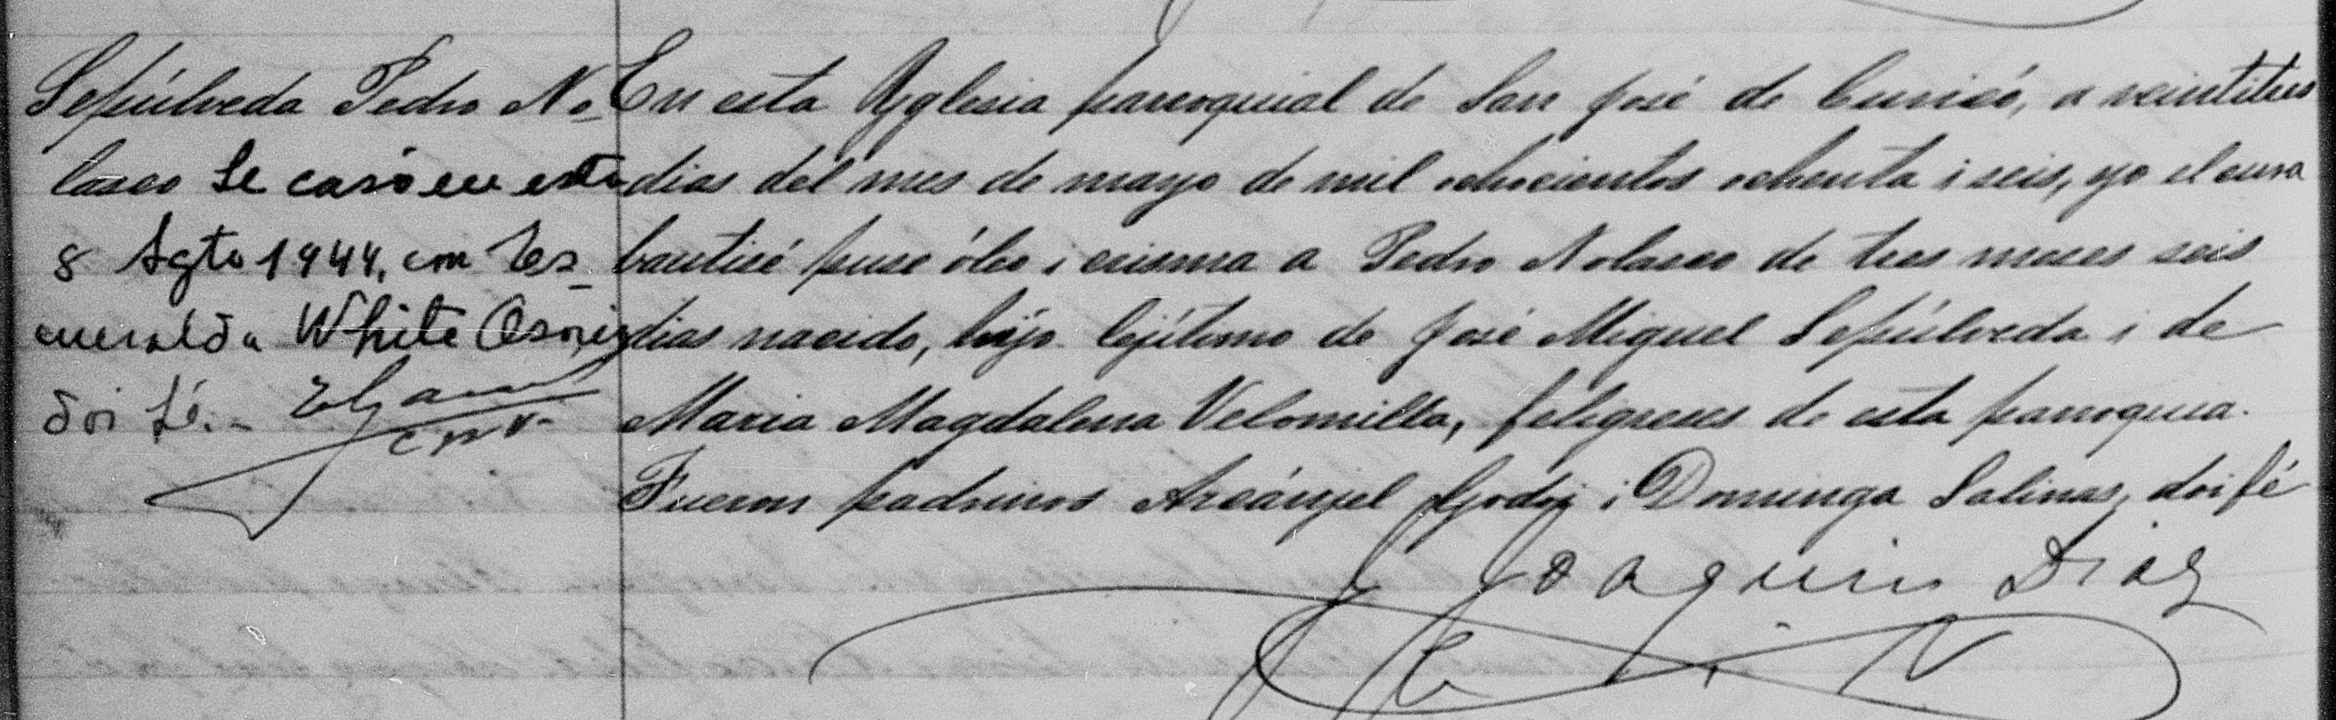 Sepúlveda Pedro No-
lasco Se casó en esta
8 Agto 1944, con Es-
meralda White Osorio
doi fé.-
En esta Yglesia parroquial de San José de Curicó, a veintitres
dias del mes de mayo de mil ochocientos ochenta i seis, yo el cura
bauticé puse óleo i crisma a Pedro Nolasco de tres meses seis
dias nacido, hijo lejítimo de José Miguel Sepúlveda i de
Maria Magdalena Velomilla, feligreses de esta parroquia.
Fueron padrinos Arcánjel Godoy i Dominga Salinas, doi fé
Joaquin Diaz